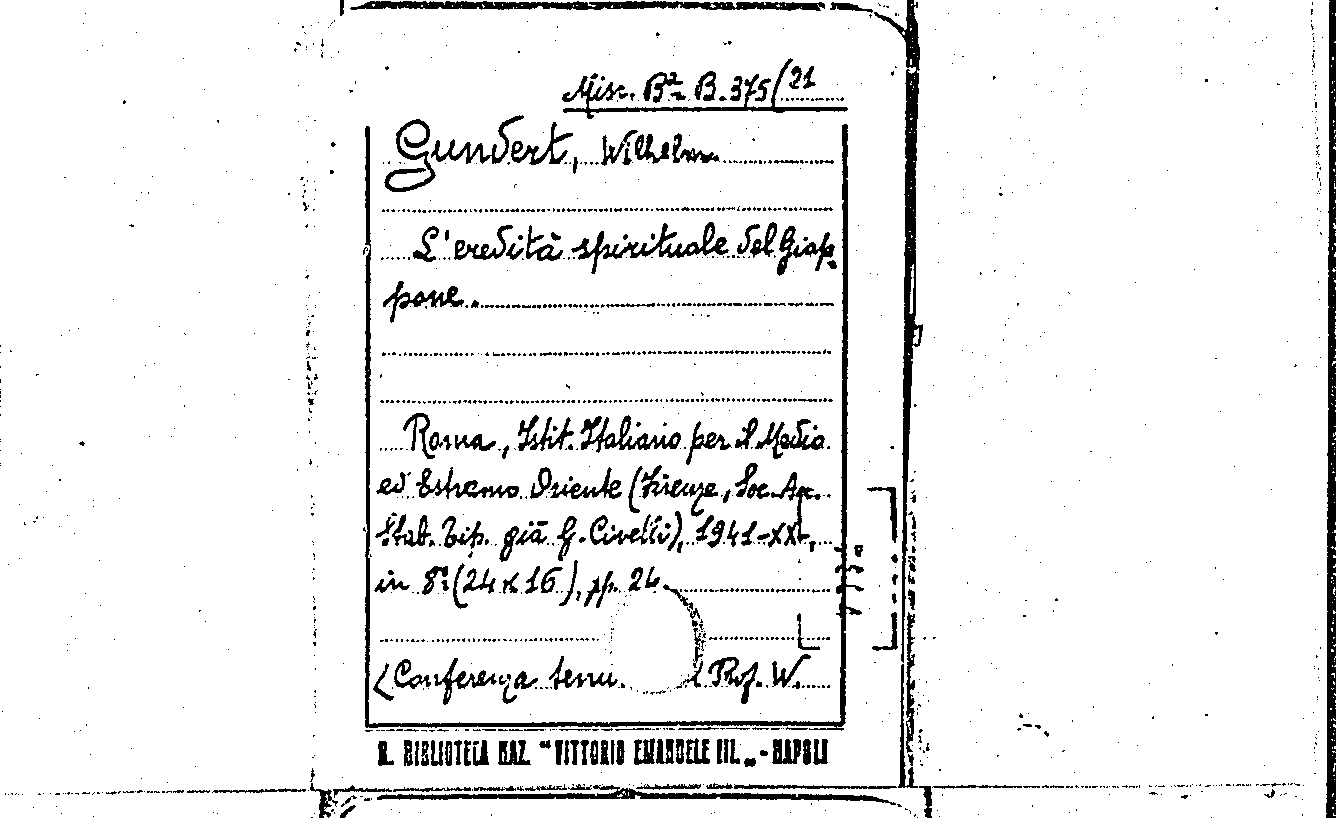 Misc. Bª B.375/21
Gundert, Wilhelm
L'eredità spirituale del Giap-
pone.
Roma, Istit. Italiano per il Medio
ed Estremo Oriente (Firenze, Soc. An.
Stab. Tip. già G. Civelli), 1941-XX,
in 8º (24 x 16), pp. 24.
(Conferenza tenu. l Prof. W.
R. BIBLIOTECA NAZ. "VITTORIO EMANUELE III. „ - NAPOLI